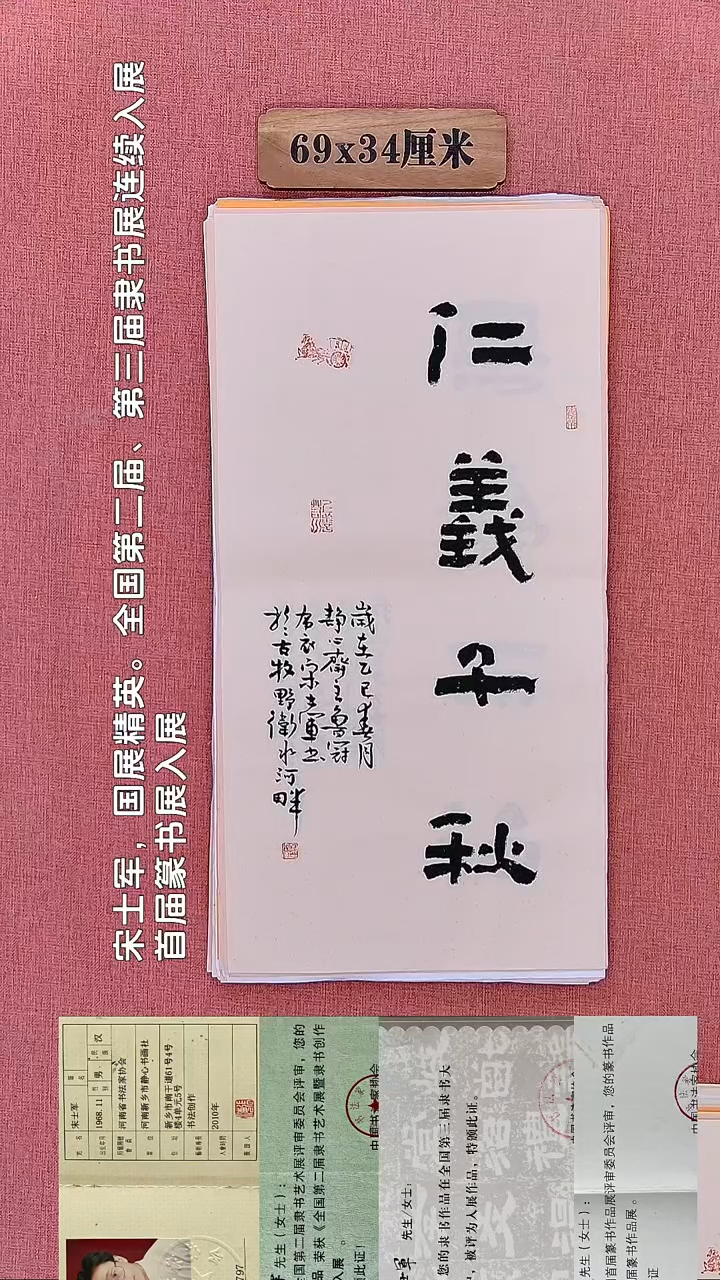 69x34厘米
宋士军，国展精英。全国第二届、第三届隶书展连续入展
首届篆书展入展
仁義千秋
歲在乙巳春月
静心齋主魯冠
布衣宋士軍書
於古牧野衛水河畔
姓名 宋士军
1968.11 男 汉
河南省书法家协会
河南新乡市静心书画社
新乡市南干道61号4号
楼4单元5号
书法创作
2010年
797
先生（女士）：
全国第二届隶书艺术展评审委员会评审，您的
品 荣获《全国第二届隶书艺术展暨隶书创作
入展 。
此证！
先生/女士：
您的隶书作品在全国第三届隶书大
，被评为入展作品，特颁此证。
先生（女士）：
首届篆书作品展评审委员会评审，您的篆书作品
首届篆书作品展 。
证